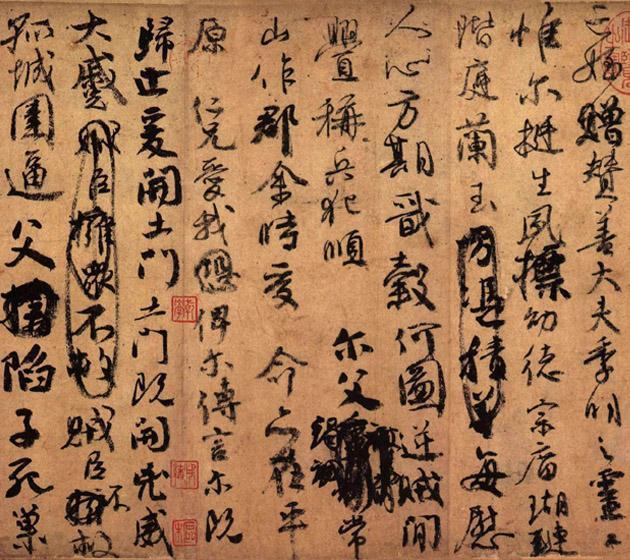 亡姪贈贊善大夫季明之靈曰
惟尔挺生夙標幼德宗廟瑚璉
階庭蘭玉方憑積善每慰
人心方期戩穀何圖逆賊閒
釁稱兵犯順尔父常
山作郡余時受命亦在平
原仁兄愛我恐俾尔傳言尔既
歸止爰開土門土門既開凶威
大蹙賊臣擁眾不救賊臣不救
孤城圍逼父陷子死巢